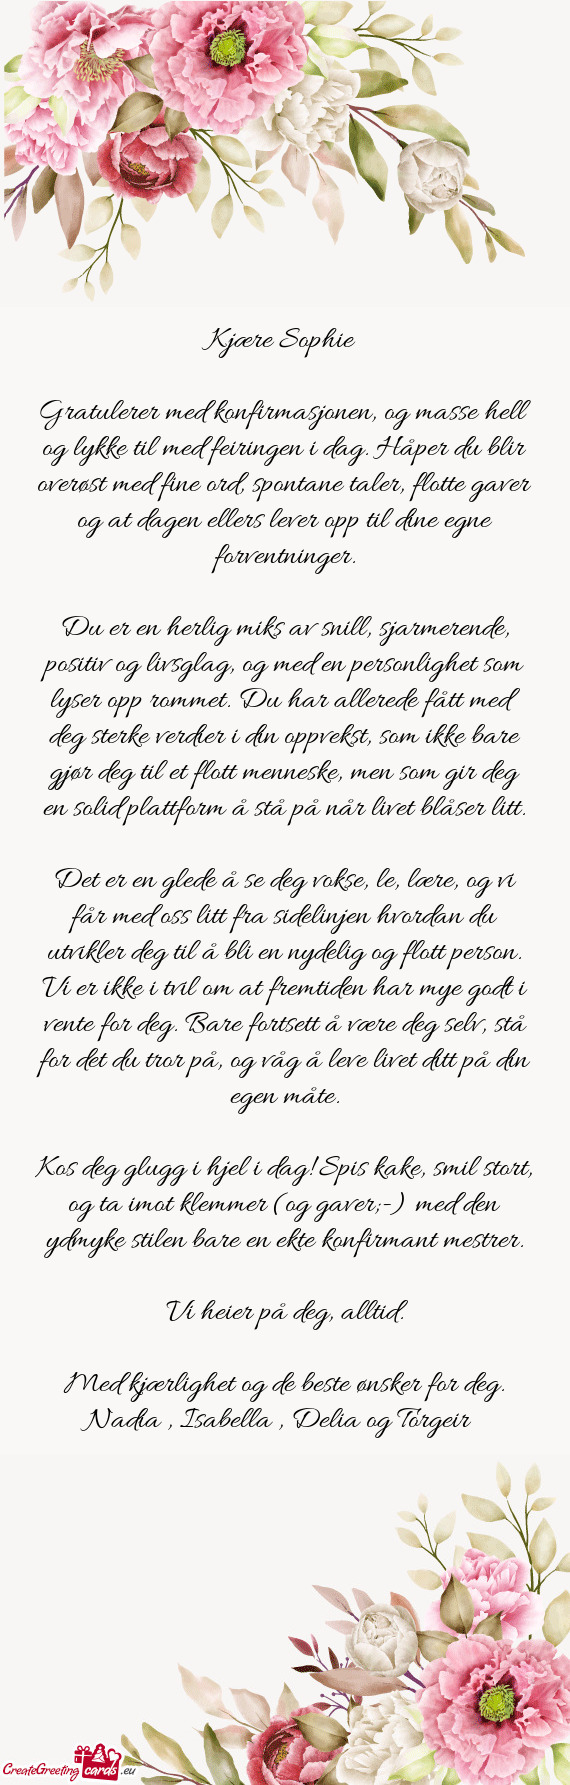 Kjære Sophie
Gratulerer med konfirmasjonen, og masse hell
og lykke til med feiringen i dag. Håper du blir
overøst med fine ord, spontane taler, flotte gaver
og at dagen ellers lever opp til dine egne
forventninger.
Du er en herlig miks av snill, sjarmerende,
positiv og livsglag, og med en personlighet som
lyser opp rommet. Du har allerede fått med
deg sterke verdier i din oppvekst, som ikke bare
gjør deg til et flott menneske, men som gir deg
en solid plattform å stå på når livet blåser litt.
Det er en glede å se deg vokse, le, lære, og vi
får med oss litt fra sidelinjen hvordan du
utvikler deg til å bli en nydelig og flott person.
Vi er ikke i tvil om at fremtiden har mye godt i
vente for deg. Bare fortsett å være deg selv, stå
for det du tror på, og våg å leve livet ditt på din
egen måte.
Kos deg glugg i hjel i dag! Spis kake, smil stort,
og ta imot klemmer (og gaver;-) med den
ydmyke stilen bare en ekte konfirmant mestrer.
Vi heier på deg, alltid.
Med kjærlighet og de beste ønsker for deg.
Nadia , Isabella , Delia og Torgeir
CreateGreeting cards .eu